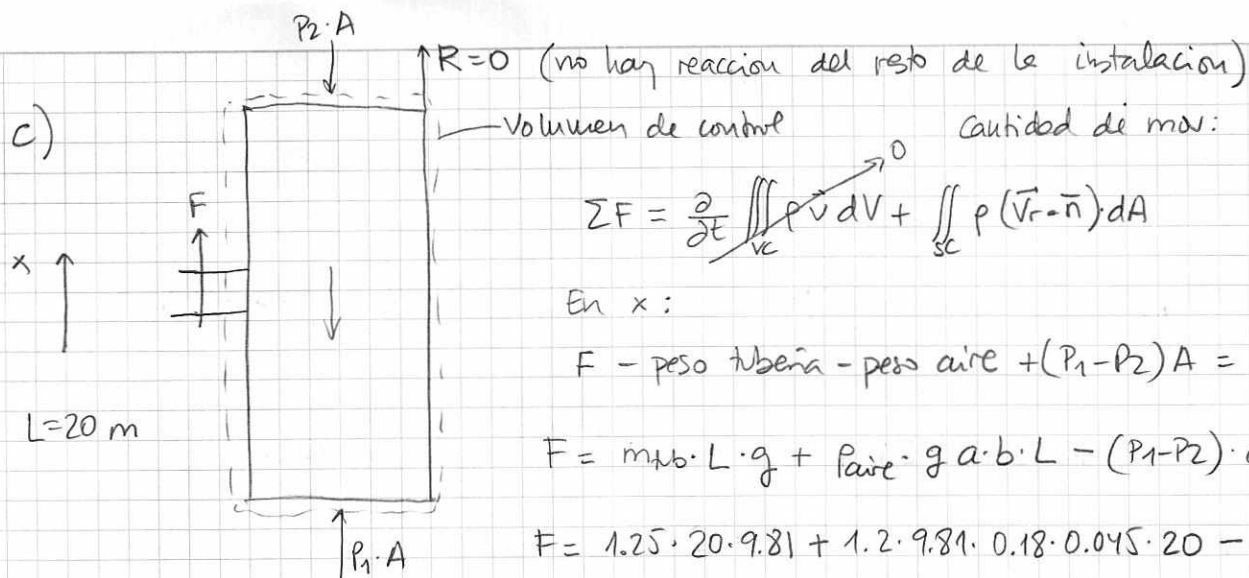 P2·A
R=0 (no hay reaccion del resto de la instalacion)
c)
Volumen de control
Cantidad de mov:
ΣF = ∂/∂t ∭VC ρ v̄ dV + ∬SC ρ (V̄r·n̄)·dA
0
F
x
En x:
F - peso tubería - peso aire + (P1-P2) A =
L=20 m
F = mtub·L·g + ρaire·g a·b·L - (P1-P2)·
F = 1.25·20·9.81 + 1.2·9.81·0.18·0.045·20 -
P1·A